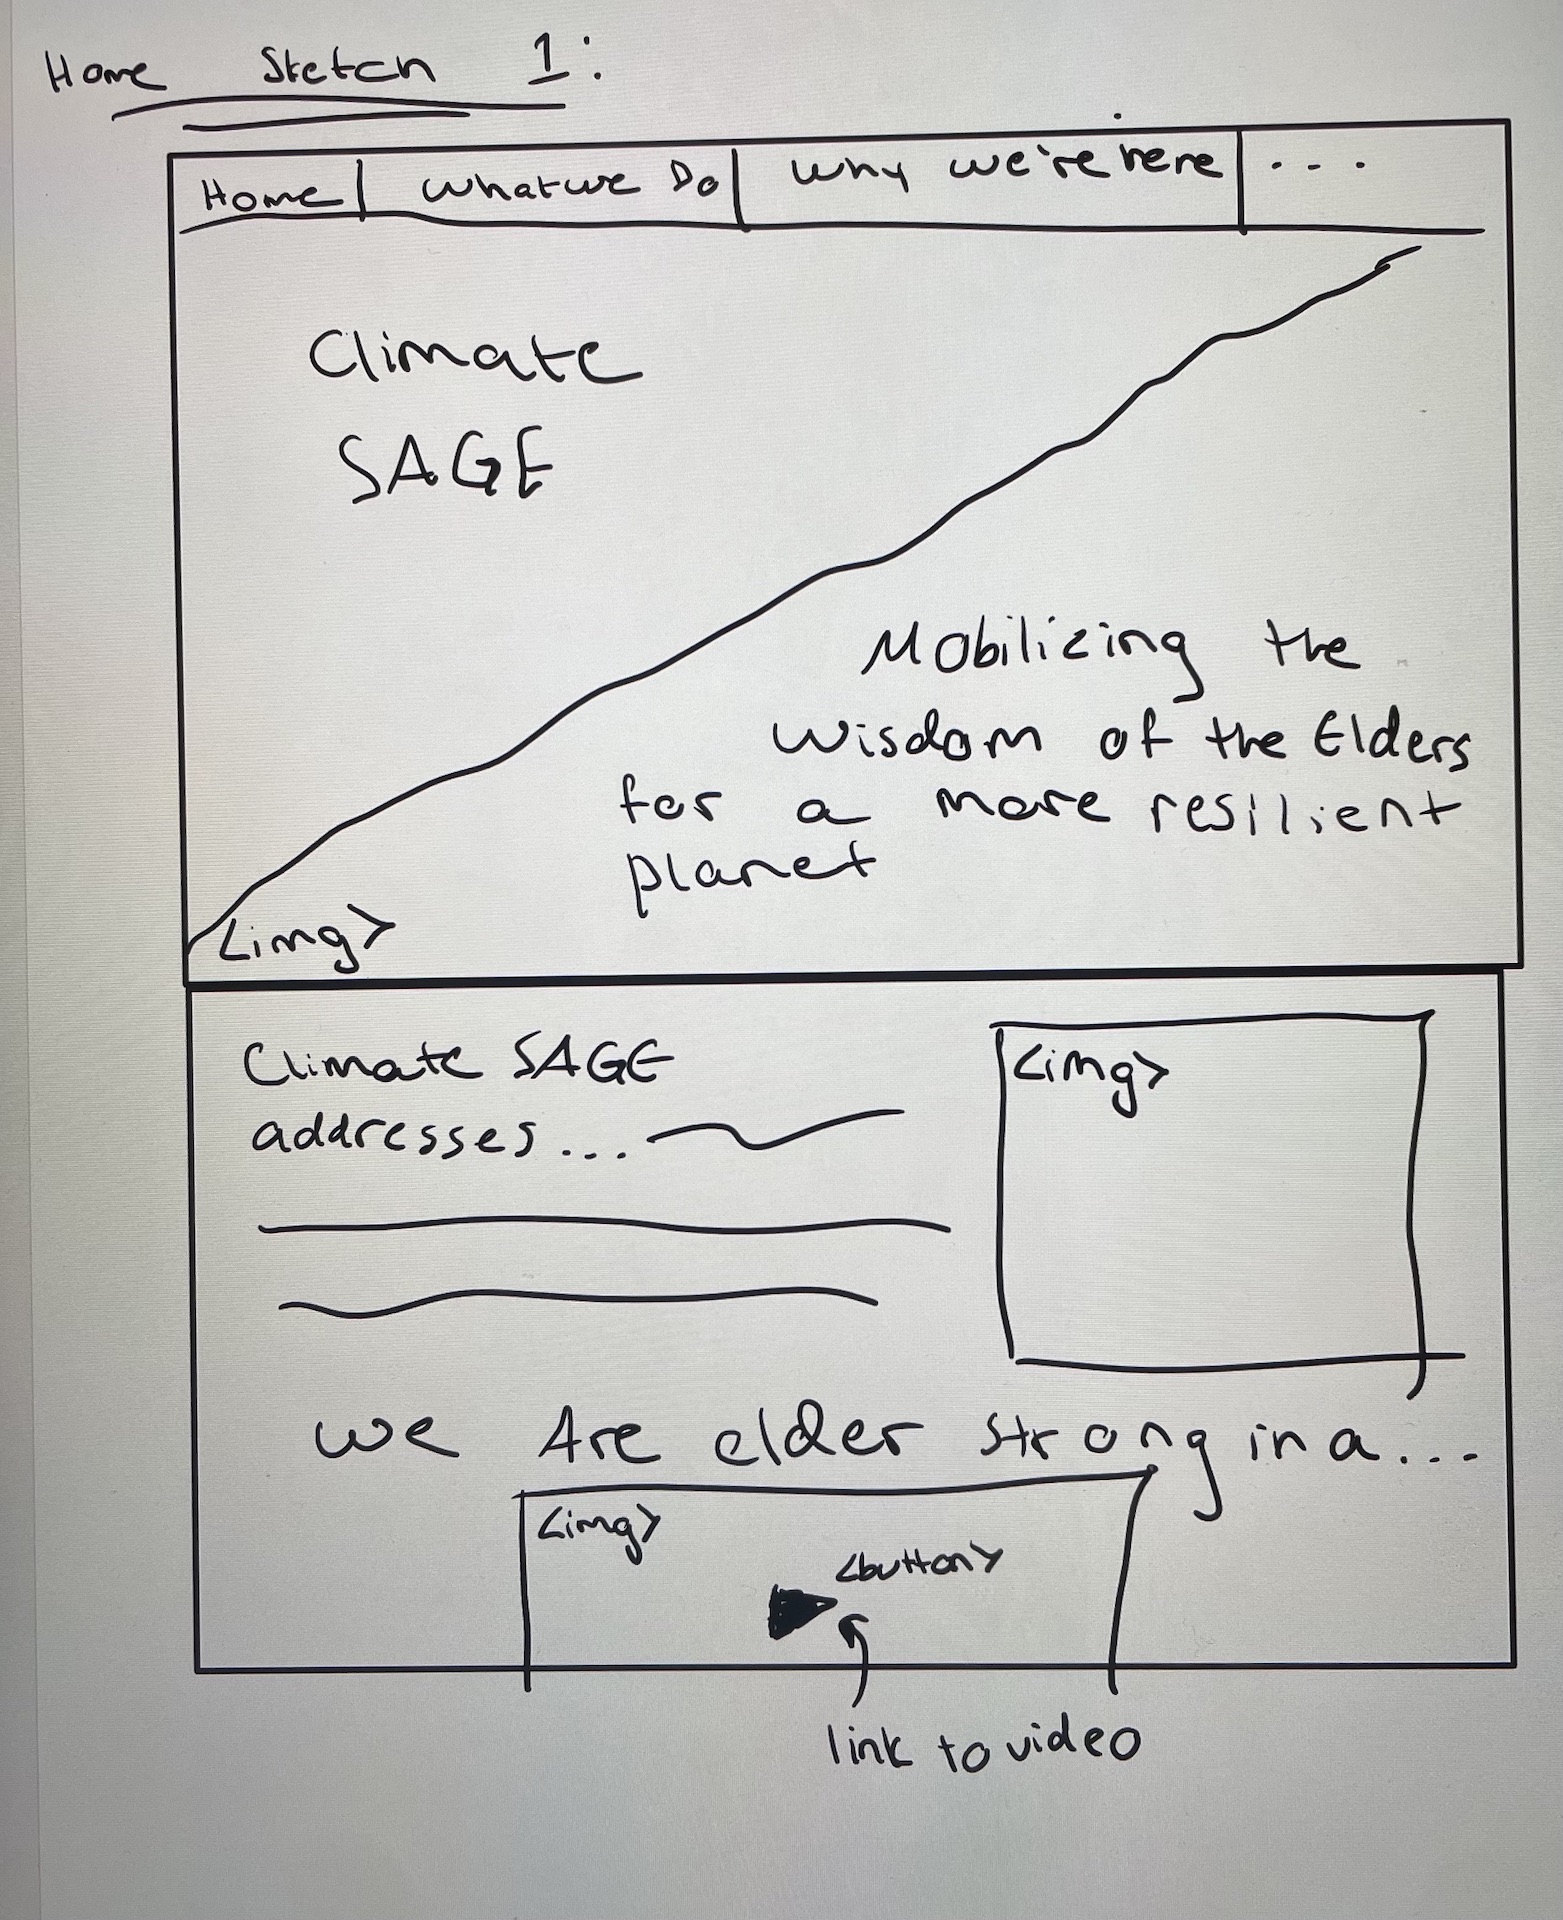 Home Sketch 1:
Home What we Do Why we're here ...
Climate
SAGE
Mobilizing the
wisdom of the Elders
for a more resilient
planet
<img>
Climate SAGE
addresses...
<img>
we Are elder strong in a...
<img>
<button>
link to video